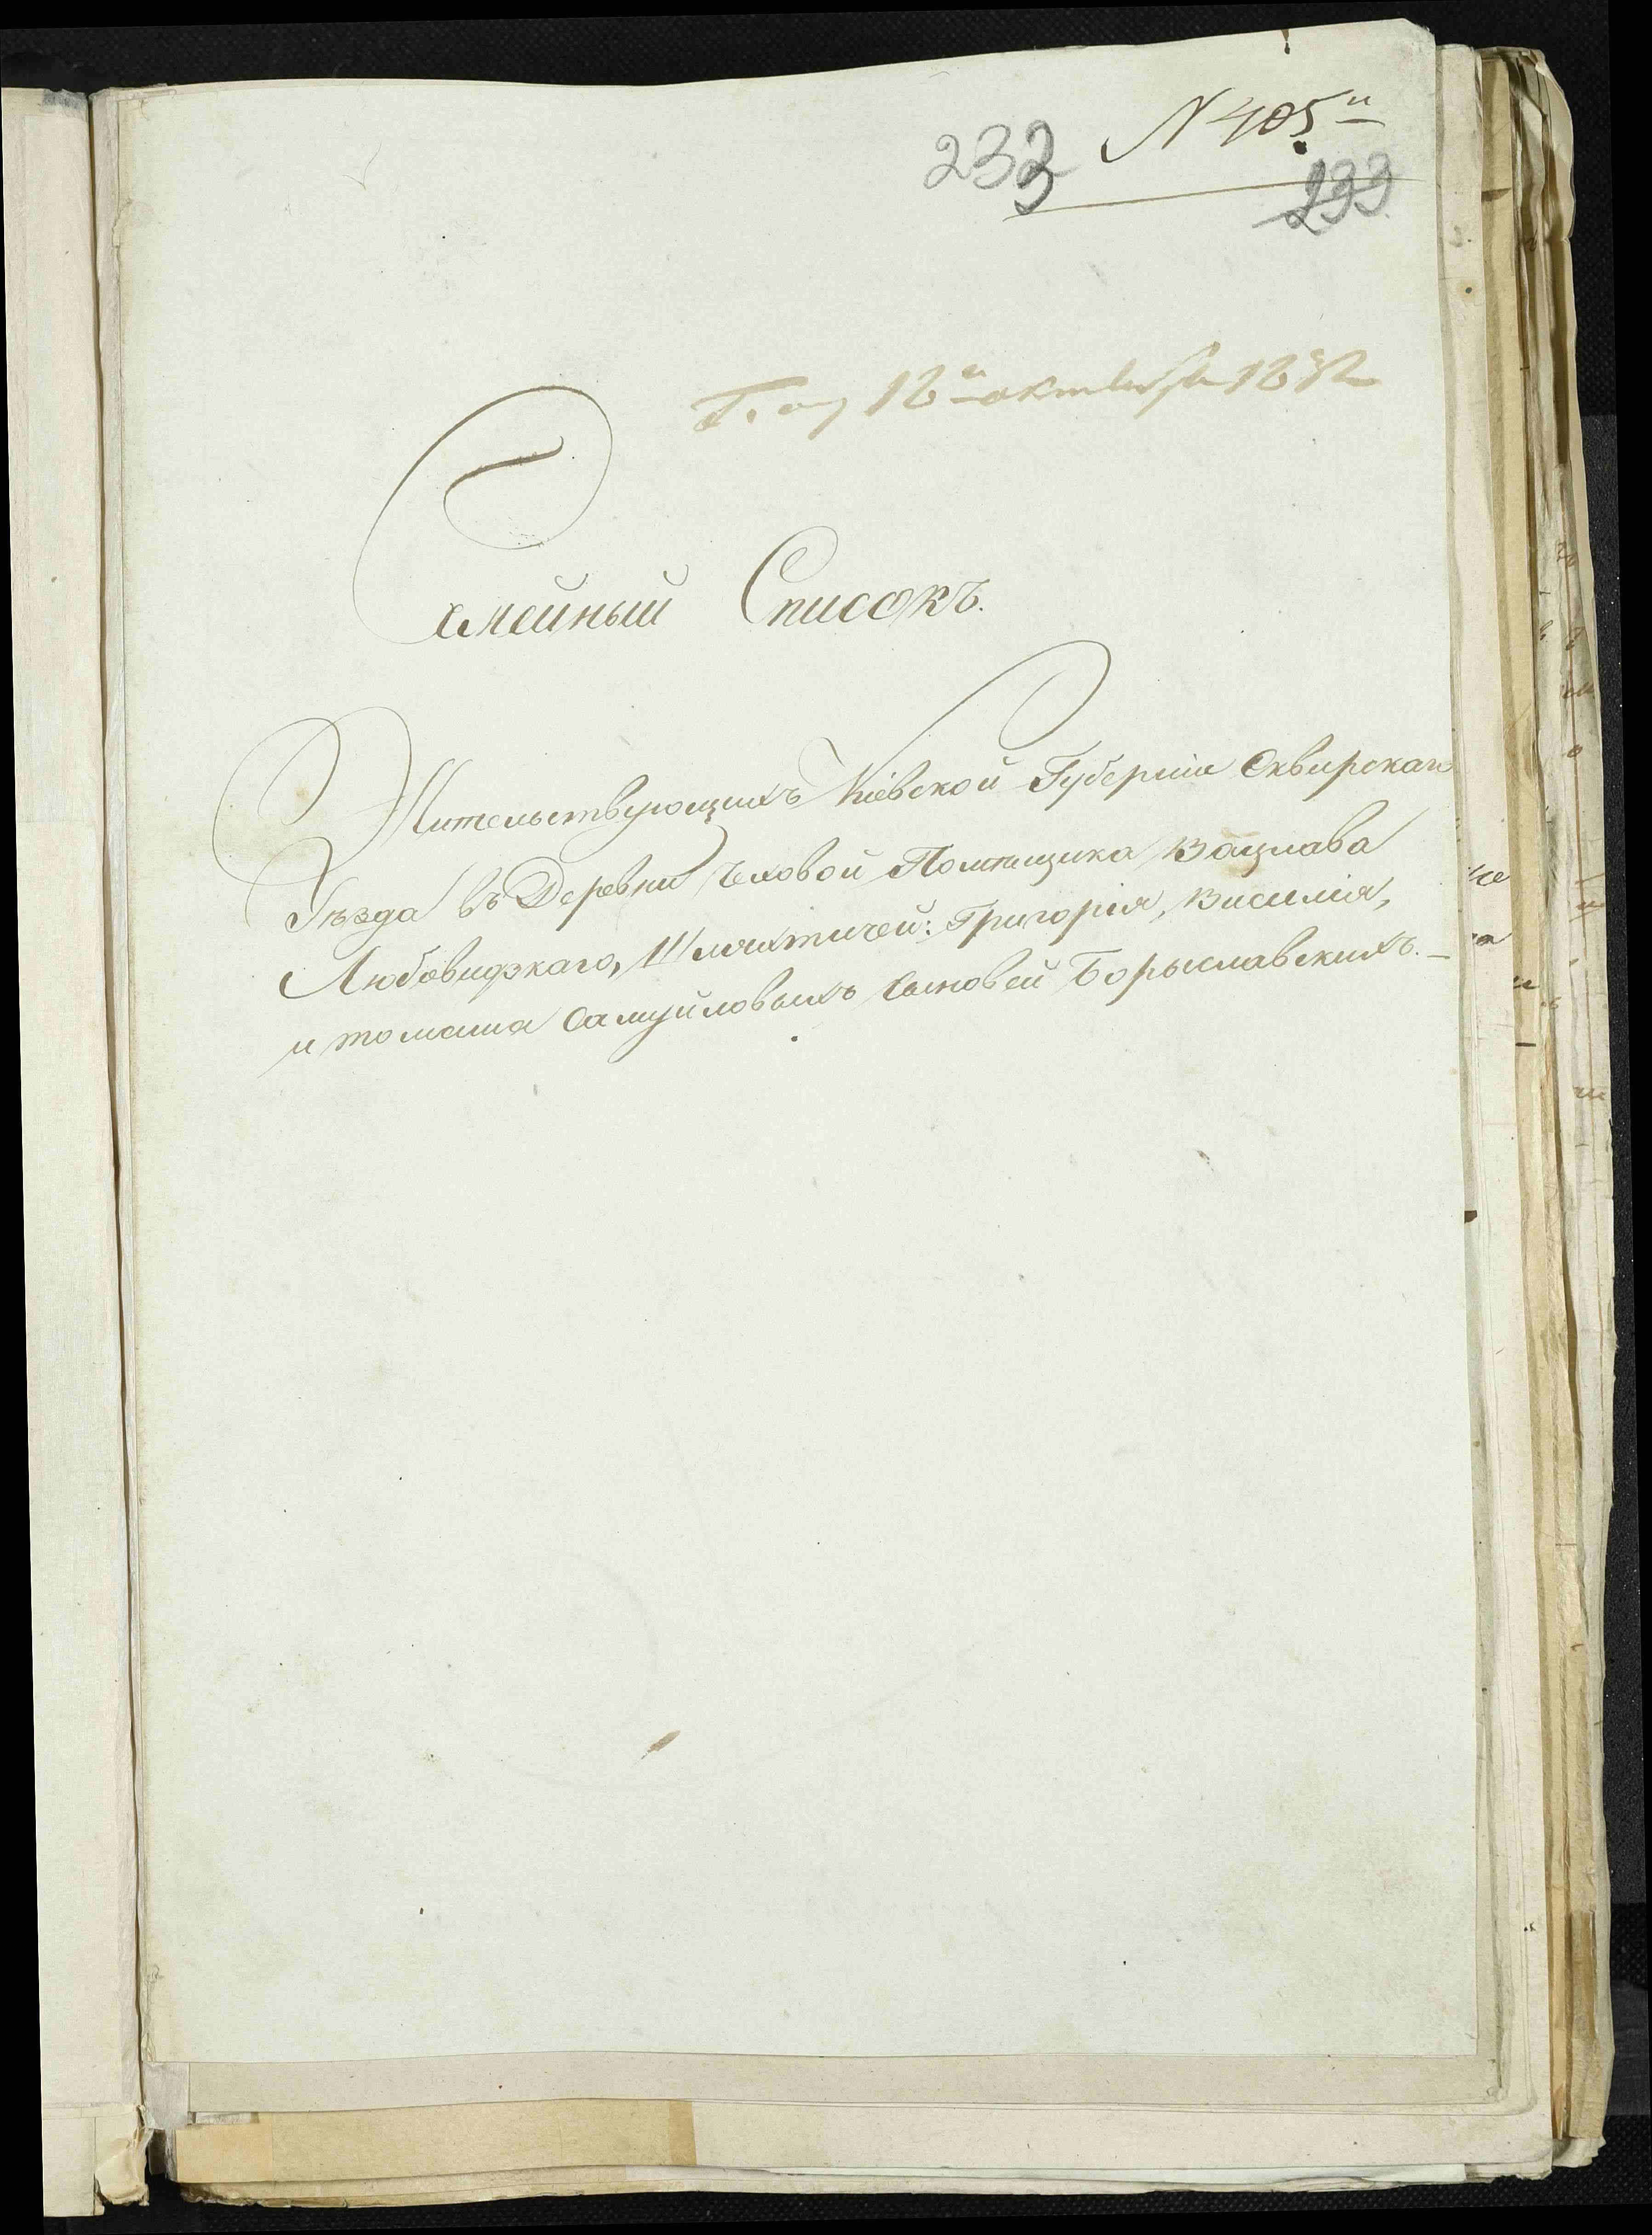 N 405й
233
233
12й октября 1832
Семейный Списокъ.
Жительствующихъ Кіевской Губерніи Сквирскаго
Уѣзда въ Деревни Чеховой Помѣщика Вацлава
Любовидзкаго, Шляхтичей: Григорія, Василія,
и томаша Самуйловыхъ Сыновей Борыславскихъ.